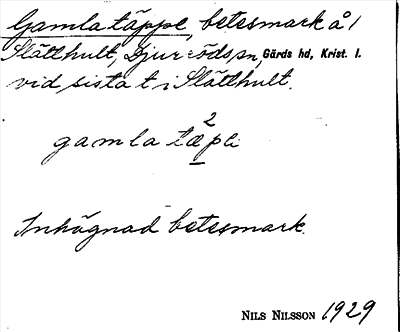 Gamla täppe, betesmark å 1
Slätthult, Djurröds sn, Gärds hd, Krist. l.
vid sista t i Slätthult.
2
gamla täpe
Inhägnad betesmark.
NILS NILSSON 1929